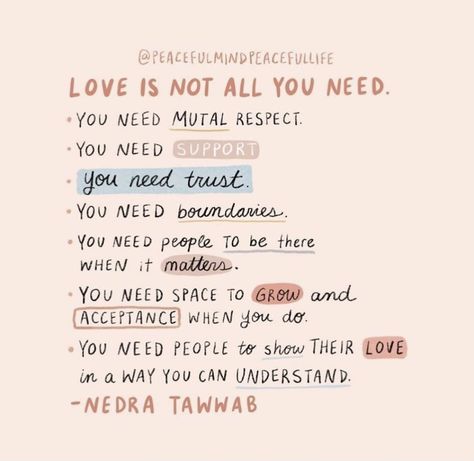 @PEACEFULMINDPEACEFULLIFE
LOVE IS NOT ALL YOU NEED.
• YOU NEED MUTAL RESPECT.
• YOU NEED SUPPORT
• you need trust.
• YOU NEED boundaries.
• YOU NEED people TO be there
WHEN it matters.
• YOU NEED SPACE TO GROW and
ACCEPTANCE WHEN you do.
• YOU NEED PEOPLE to show THEIR LOVE
in a WAY YOU CAN UNDERSTAND.
-NEDRA TAWWAB